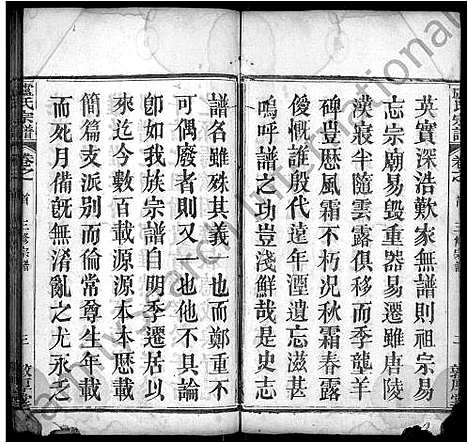 英實深浩歎家無譜則祖宗易
忘宗廟易毀重器易遷雖唐陵
漢寢半隨雲露俱移而季龔羊
碑豊歷風霜不朽况秋霜春露
愾懷誰殷代遠年湮遺忘滋甚
嗚呼譜之功豈淺鮮哉史志
譜名雖殊其義一也而鄭重不
可偶廢者則又一也他不具論
卽如我族宗譜自明季遷居於
來迄今數百載源源本本歷載
簡篇支派别而倫常尊生年歲
而死月備旣無淆亂之尤永乏
盧氏宗譜 卷之首 三修宗譜 三 敦厚堂